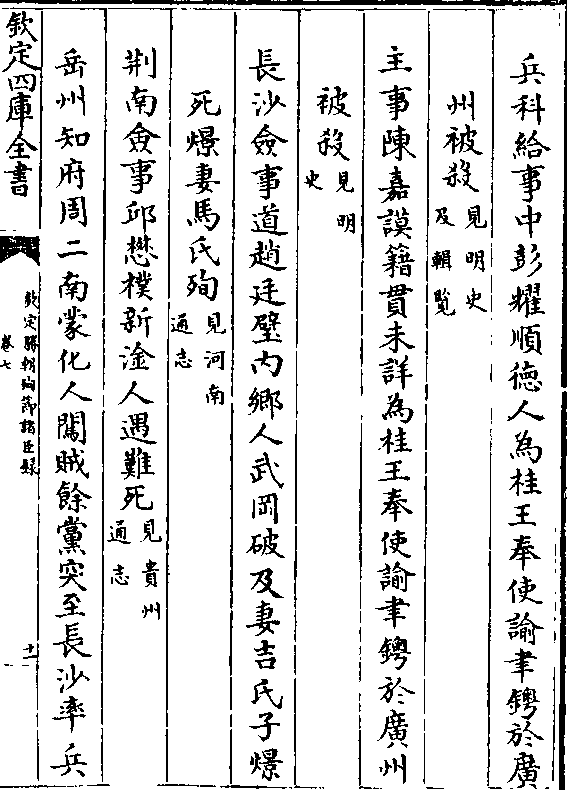 兵科給事中彭耀順徳人為桂王奉使諭聿鐭於廣
州被殺見明史及輯覽
主事陳嘉謨籍貫未詳為桂王奉使諭聿鐭於廣州
被殺見明史
長沙僉事道趙廷璧內鄉人武岡破及妻吉氏子燝
死燝妻馬氏殉見河南通志
荆南僉事邱懋樸新淦人遇難死見貴州通志
岳州知府周二南蒙化人闖賊餘黨突至長沙率兵
欽定四庫全書
欽定勝朝殉節諸臣録
卷七
十一